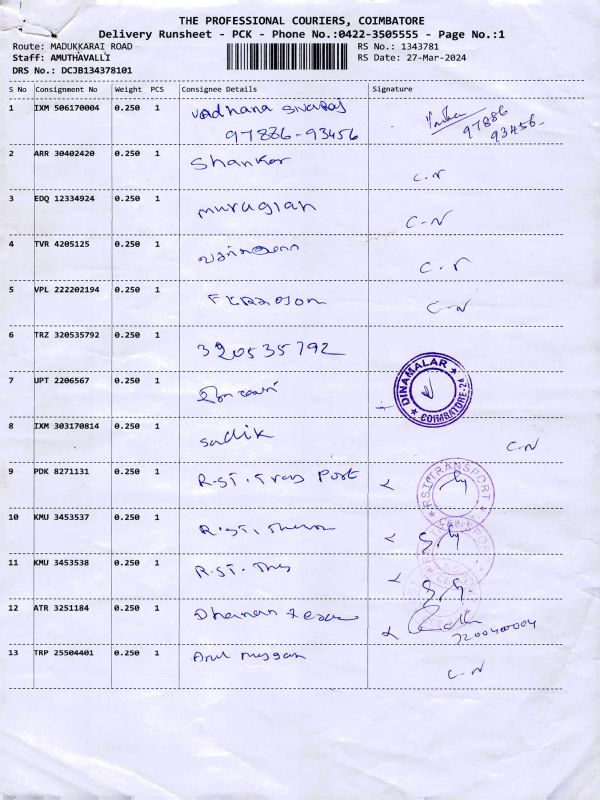 THE PROFESSIONAL COURIERS, COIMBATORE
Delivery Runsheet - PCK - Phone No.:0422-3505555 - Page No.:1
Route: MADUKKARAI ROAD
RS No.: 1343781
Staff: AMUTHAVALLI
RS Date: 27-Mar-2024
DRS No.: DCJB134378101
S No Consignment No Weight PCS Consignee Details Signature
1 IXM 506170004 0.250 1 Vadhana Sivaraj
97886-93456
97886
93456
2 ARR 30402420 0.250 1 Shankar
C.N
3 EDQ 12334924 0.250 1 murugian
C-N
4 TVR 4205125 0.250 1
C.N
5 VPL 222202194 0.250 1
C-N
6 TRZ 320535792 0.250 1 320535792
DINAMALAR
COIMBATORE-24
7 UPT 2206567 0.250 1
8 IXM 303170814 0.250 1 Sadik
C-N
9 PDK 8271131 0.250 1 R.ST. Trans Port
RST TRANSPORT
10 KMU 3453537 0.250 1 R.ST.
11 KMU 3453538 0.250 1 R.ST.
12 ATR 3251184 0.250 1
7200400004
13 TRP 25504401 0.250 1 Arul
C-N